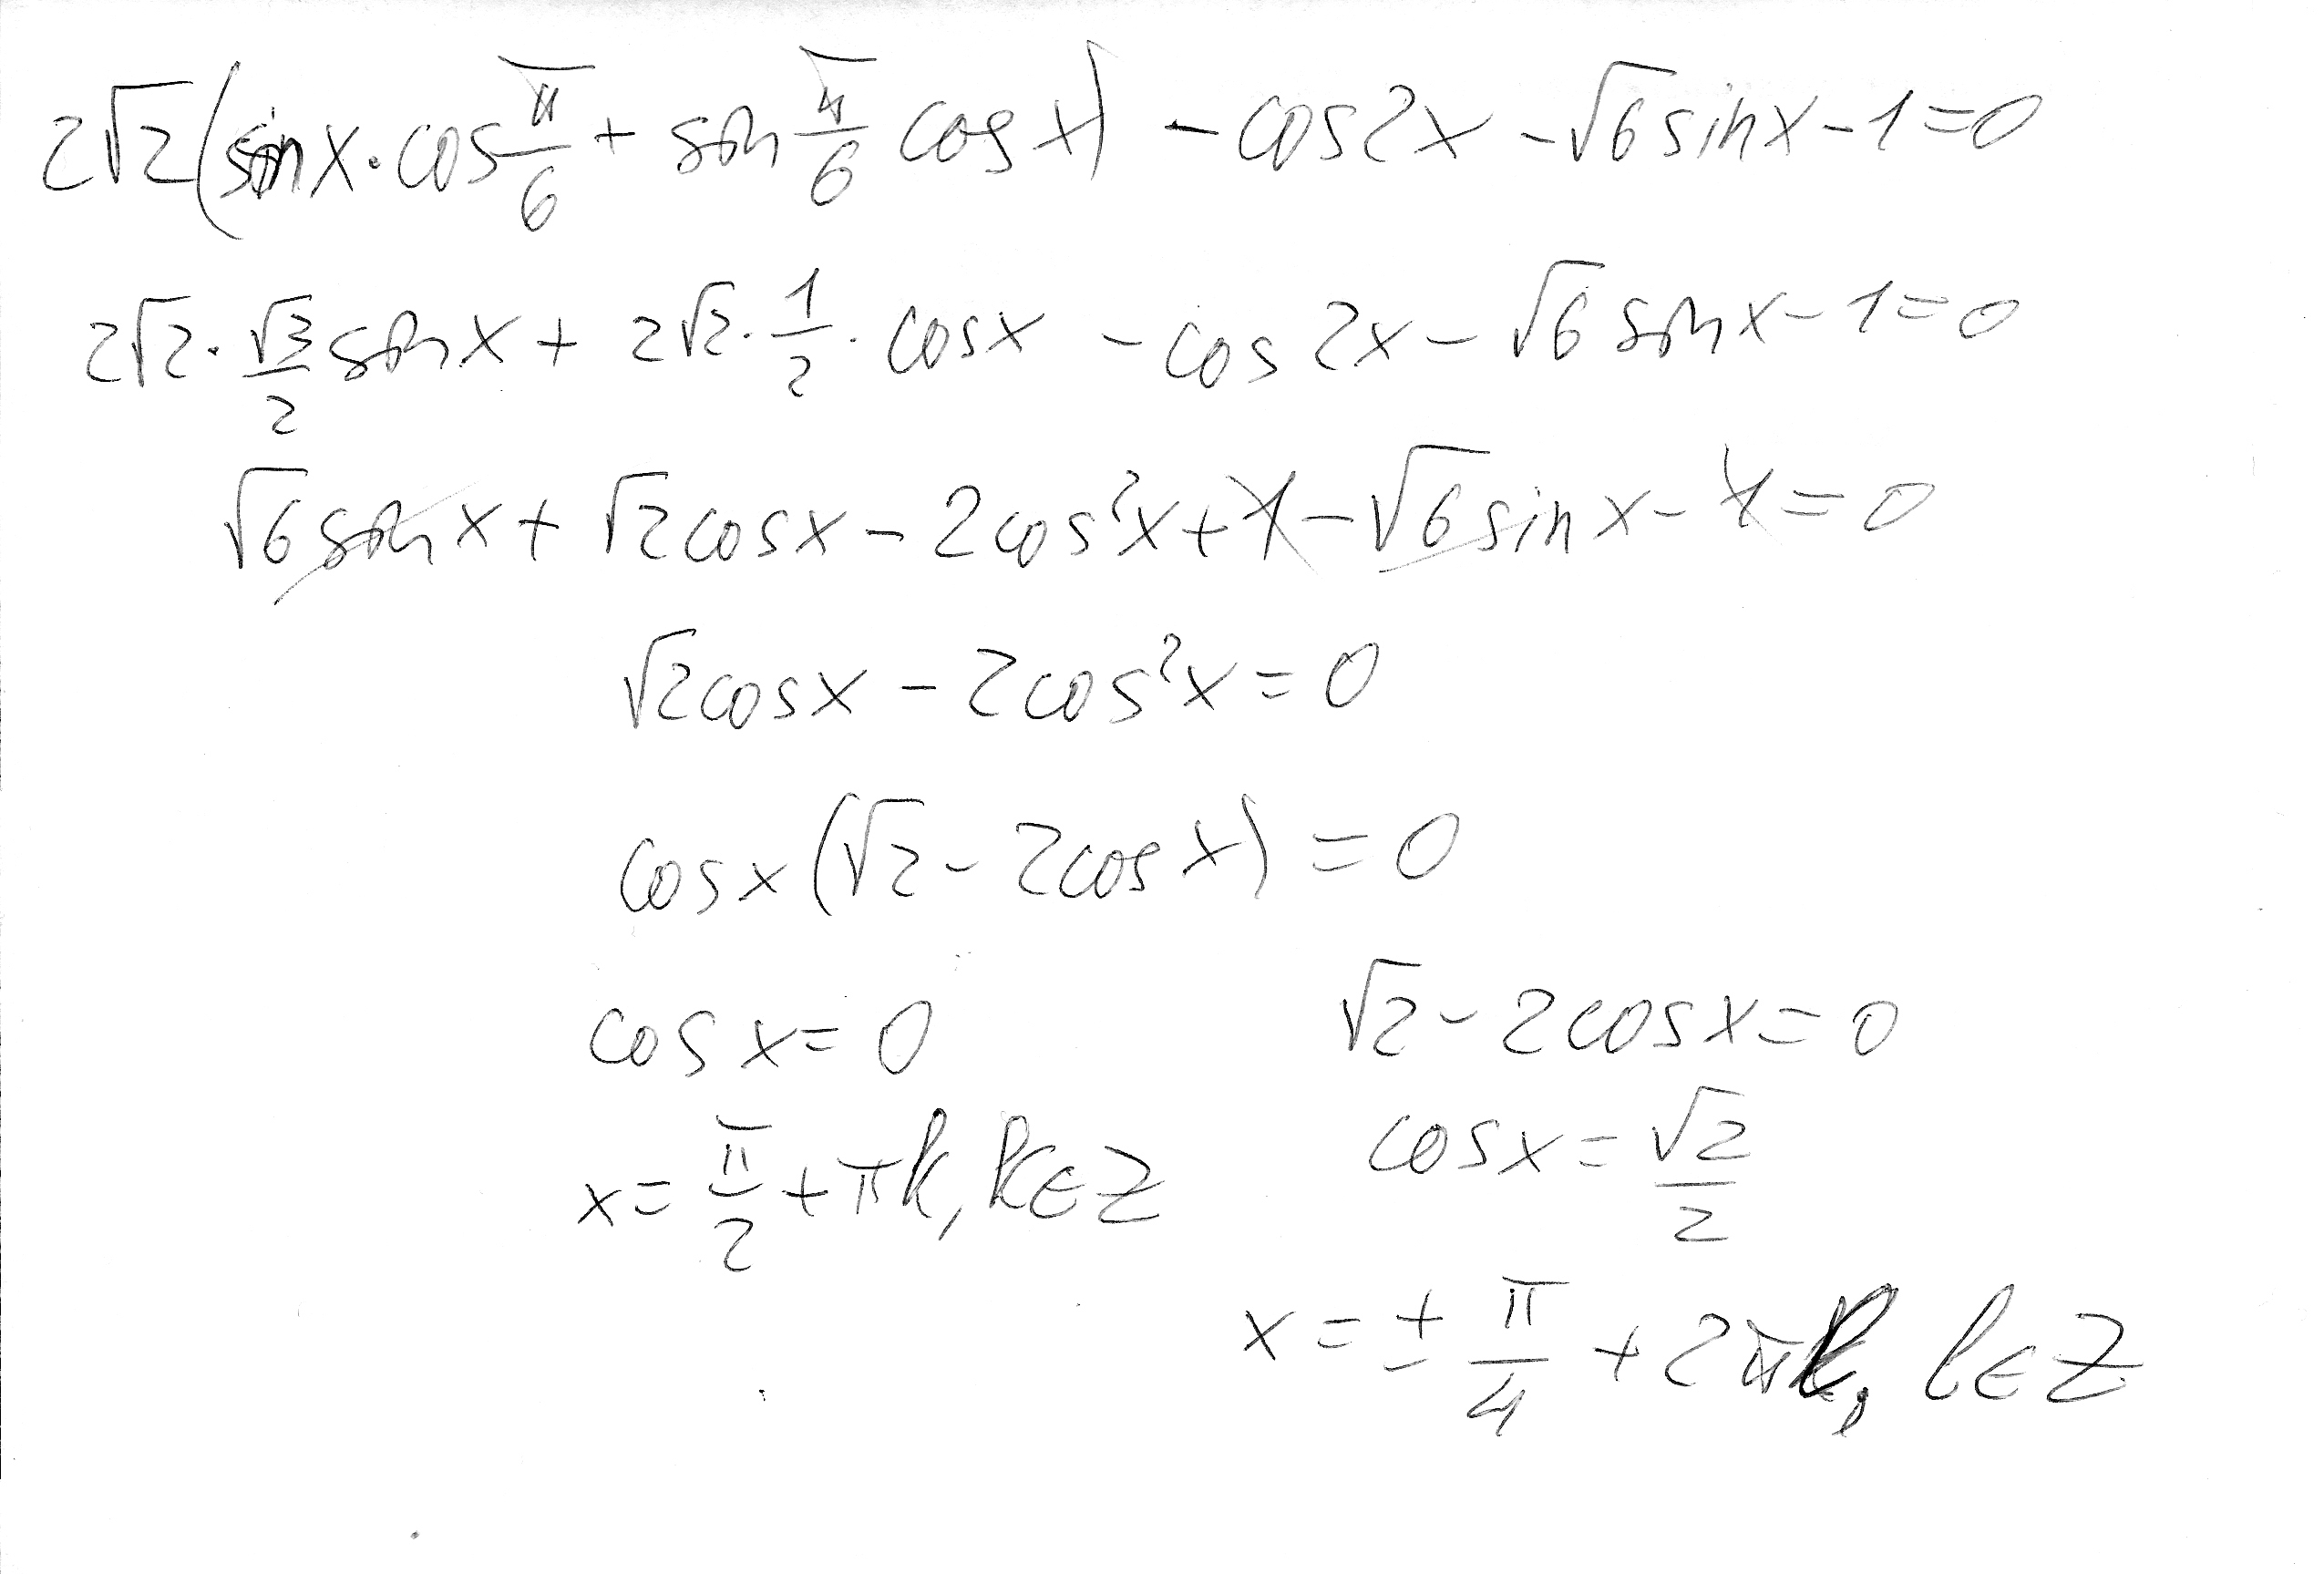 2√2(sin x · cos π/6 + sin π/6 cos x) - cos2x - √6 sin x - 1 = 0
2√2 · √3/2 sin x + 2√2 · 1/2 · cos x - cos 2x - √6 sin x - 1 = 0
√6 sin x + √2 cos x - 2cos²x + 1 - √6 sin x - 1 = 0
√2 cos x - 2cos²x = 0
cos x (√2 - 2cos x) = 0
cos x = 0 √2 - 2cos x = 0
cos x = √2/2
x = π/2 + πk, k∈Z
x = ± π/4 + 2πl, l∈Z